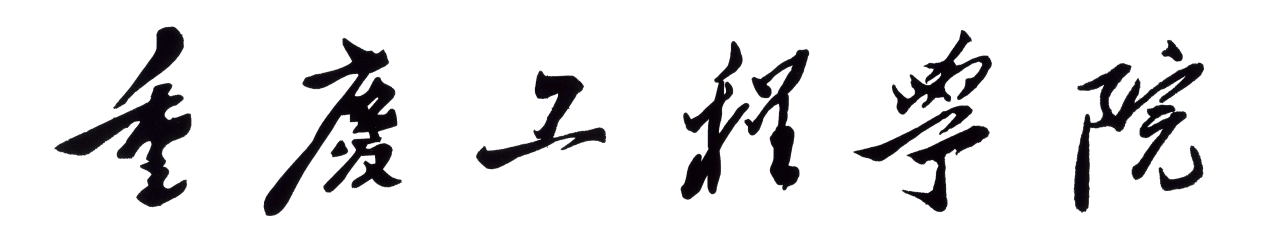 重慶工程學院